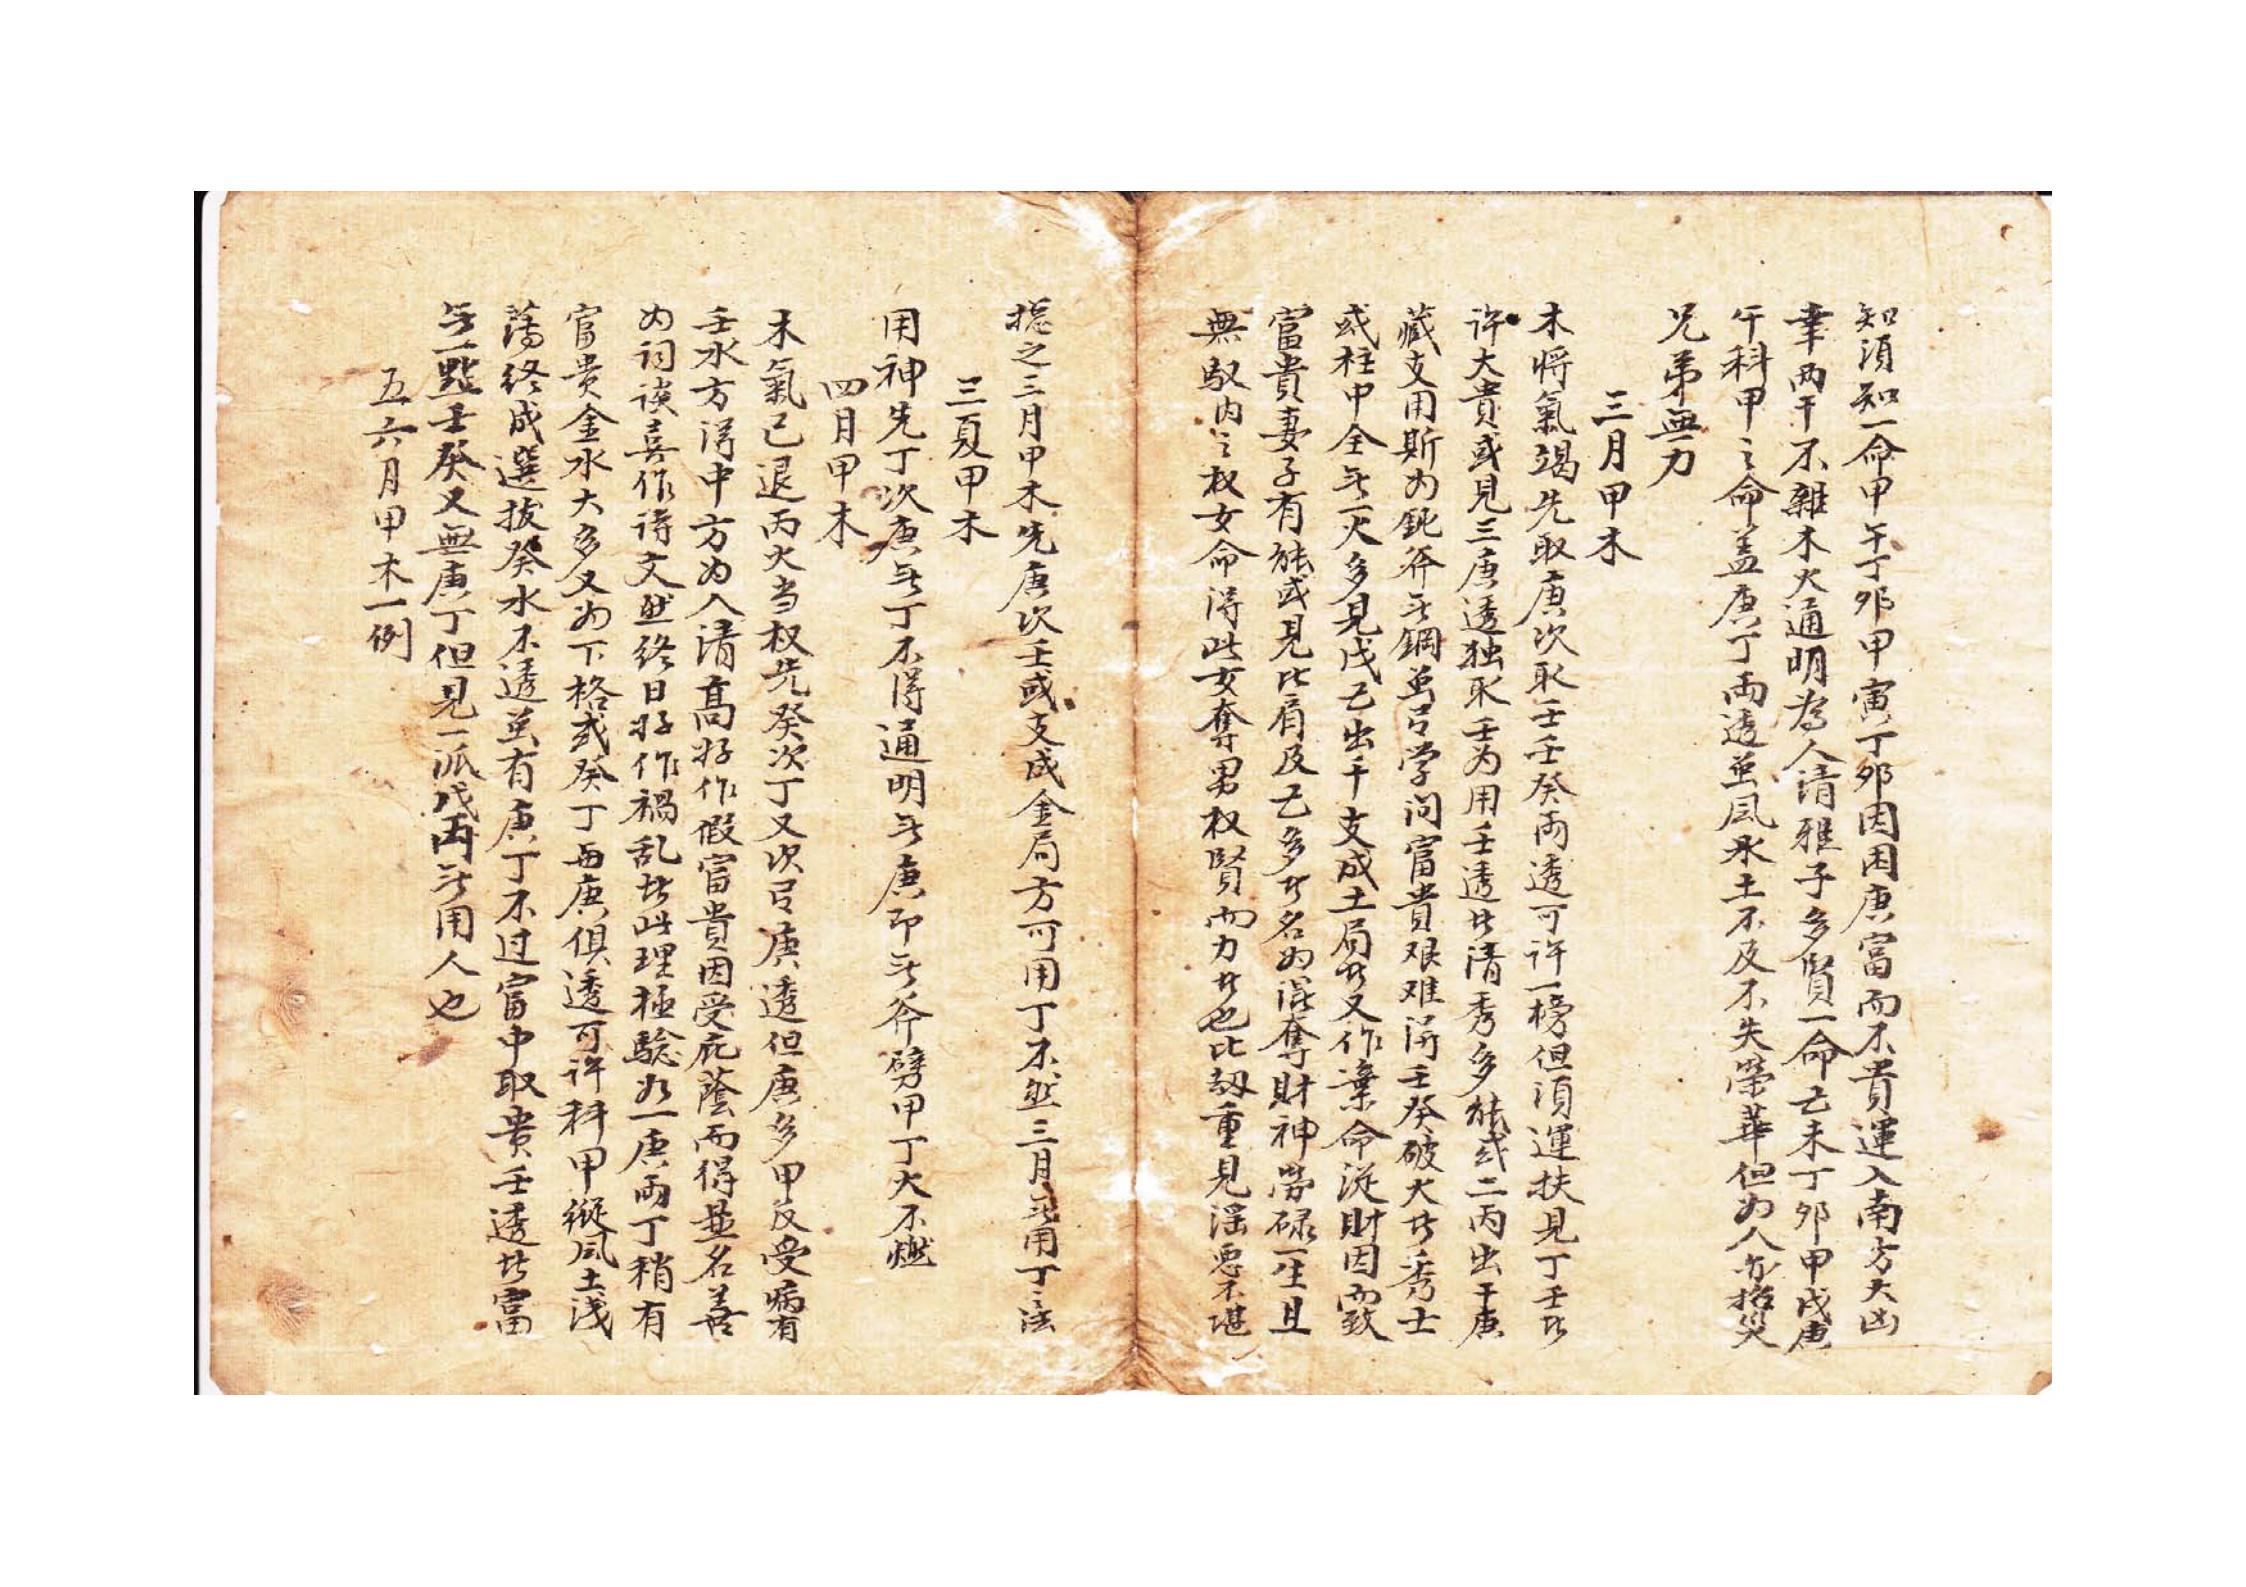 知須知一命甲午丁卯甲寅丁卯因困庚富而不貴運入南方大凶
幸兩干不雜木火通明為人清雅子多賢一命己未丁卯甲戌庚
午科甲之命盖庚丁兩透虽風水土不及不失榮華但为人亦招災
兄弟無力
三月甲木
木將氣竭先取庚次取壬壬癸両透可许一榜但須運扶見丁壬
许大貴或見三庚透独取壬为用壬透者清秀多能或二丙出干庚
藏支用斯为鈍斧无鋼虽吕学问富貴艰难得壬癸破火者秀士
或柱中全无一火多見戊己出干支成土局者又作棄命從財因而致
富貴妻子有能或見比肩及己多者名为混奪財神劳碌一生且
無馭内之权女命得此女奪男权賢而力者也比刼重見淫悪不堪
揔之三月甲木先庚次壬或支成金局方可用丁不然三月无用丁之法
三夏甲木
用神先丁次庚无丁不得通明无庚即无斧劈甲丁火不燃
四月甲木
木氣已退丙火当权先癸次丁又次吕庚透但庚多甲反受病有
壬水方得中方为人清高好作假富貴因受庇蔭而得显名善
为词谈喜作诗文然终日好作禍乱者此理極驗为一庚兩丁稍有
富贵金水大多又为下格或癸丁与庚俱透可许科甲縱風土浅
薄终成選拔癸水不透虽有庚丁不过富中取贵壬透者富
无一點壬癸又無庚丁但見一派戊丙无用人也
五六月甲木一例